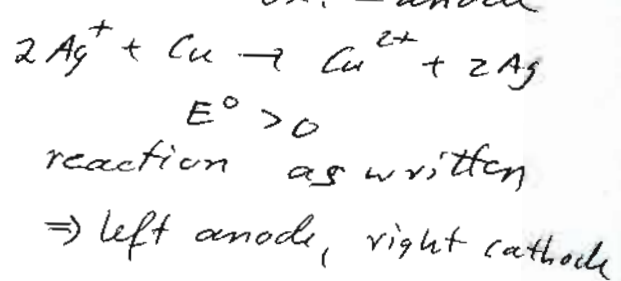 2 Ag⁺ + Cu → Cu²⁺ + 2 Ag
E° > 0
reaction as written
⇒ left anode, right cathode